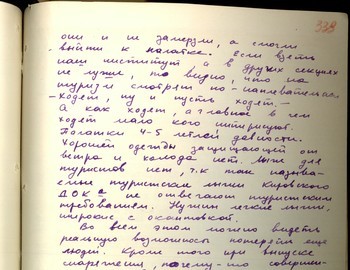 338
они и не замерзли, а смогли
выйти к палатке. Если взять
наш институт, а в других секциях
не лучше, то видно, что на
туризм смотрят по-наплевательски
-ходят, ну и пусть ходят.-
А как ходят, а главное в чем
ходят мало кого интересует.
Палатки 4-5 летней давности.
Хорошей одежды защищающей от
ветра и холода нет. Лыж для
туристов нет, т.к. так называ-
емые туристские лыжи Кировского
ДОКа не отвечают туристским
требованиям. Нужны легкие лыжи,
широкие с окантовкой.
Во всем этом можно видеть
реальную возможность потерять еще
людей. Кроме того при выпуске
снаряжения, почему-то совершен-